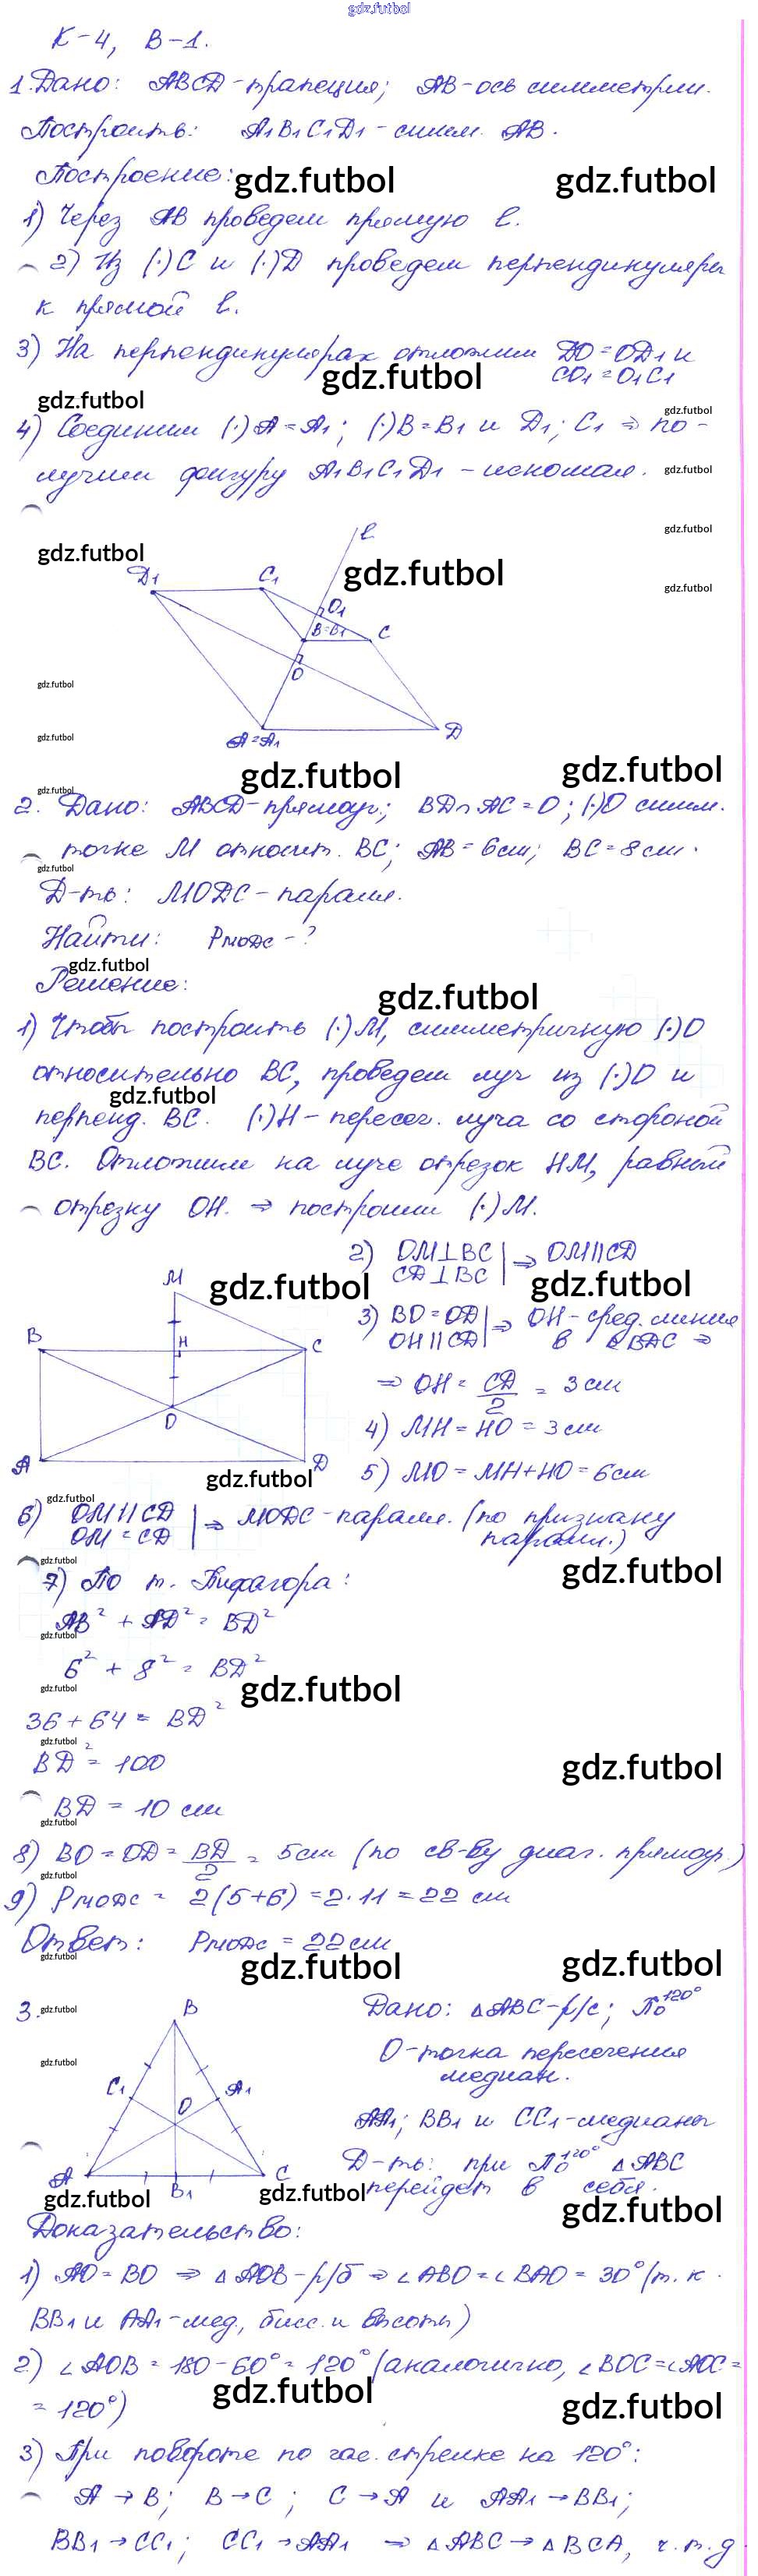 gdz.futbol
К-4, В-1.
1. Дано: ABCD-трапеция; AB-ось симметрии.
Построить: A₁B₁C₁D₁ - симм. AB.
Построение:
gdz.futbol gdz.futbol
1) Через AB проведем прямую l.
2) Из (·)C и (·)D проведем перпендикуляры
к прямой l.
3) На перпендикулярах отложим DO=OD₁ и
CO₁=O₁C₁
gdz.futbol
gdz.futbol
gdz.futbol
4) Соединим (·)A=A₁; (·)B=B₁ и D₁; C₁ ⇒ по-
лучим фигуру A₁B₁C₁D₁ - искомая.
gdz.futbol
gdz.futbol
l
gdz.futbol
gdz.futbol
gdz.futbol
D₁ C₁ O₁
B=B₁ C
O
gdz.futbol
gdz.futbol
A=A₁ D
gdz.futbol gdz.futbol
gdz.futbol
2. Дано: ABCD-прямоуг.; BD∩AC=O; (·)O симм.
точке M относит. BC; AB=6см; BC=8см.
gdz.futbol
Д-ть: MODC-паралл.
Найти: PMODC-?
gdz.futbol
Решение:
gdz.futbol
1) Чтобы построить (·)M, симметричную (·)O
относительно BC, проведем луч из (·)O и
gdz.futbol
перпенд. BC. (·)H-пересеч. луча со стороной
BC. Отложим на луче отрезок HM, равный
отрезку OH. ⇒ построим (·)M.
2) OM⊥BC
CD⊥BC | ⇒ OM||CD
M
gdz.futbol gdz.futbol
3) BO=OD
OH||CD | ⇒ OH-сред. линия
в ΔBDC ⇒
B H C
⇒ OH = CD/2 = 3см
O
4) MH=HO=3см
A D
5) MO=MH+HO=6см
gdz.futbol
gdz.futbol
6) OM||CD
OM=CD | ⇒ MODC-паралл. (по признаку
паралл.)
gdz.futbol
gdz.futbol
7) По т. Пифагора:
AB²+AD²=BD²
gdz.futbol
6²+8²=BD²
gdz.futbol
gdz.futbol
36+64=BD²
gdz.futbol
BD²=100
gdz.futbol
BD=10 см
gdz.futbol
8) BO=OD=BD/2=5см (по св-ву диаг. прямоуг.)
gdz.futbol
9) PMODC = 2(5+6)=2·11=22 см
Ответ: PMODC=22см
gdz.futbol
gdz.futbol gdz.futbol
3.
gdz.futbol
B
Дано: ΔABC-р/с; П₀¹²⁰°
O-точка пересечения
медиан.
gdz.futbol
C₁ A₁
O
AA₁; BB₁ и CC₁-медианы
Д-ть: при П₀¹²⁰° ΔABC
перейдет в себя.
A B₁ C
gdz.futbol gdz.futbol gdz.futbol
Доказательство:
1) AO=BO ⇒ ΔAOB-р/б ⇒ ∠ABO=∠BAO=30° (т.к.
BB₁ и AA₁-мед., бисс. и высоты)
2) ∠AOB=180-60°=120° (аналогично, ∠BOC=∠AOC=
=120°)
gdz.futbol gdz.futbol
3) При повороте по час. стрелке на 120°:
A→B; B→C; C→A и AA₁→BB₁;
BB₁→CC₁; CC₁→AA₁ ⇒ ΔABC→ΔBCA, ч.т.д.